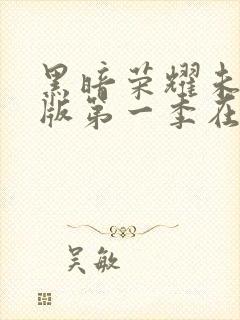 黑暗荣耀未
版第一季在
吴敏